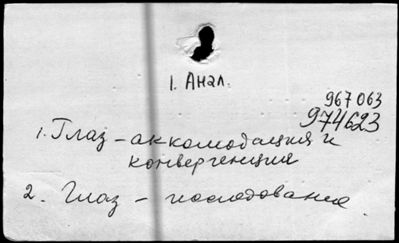 1. Анал.
967063
974623
1. Глаз - аккомодация и
конвергенция
2. Глаз - исследования